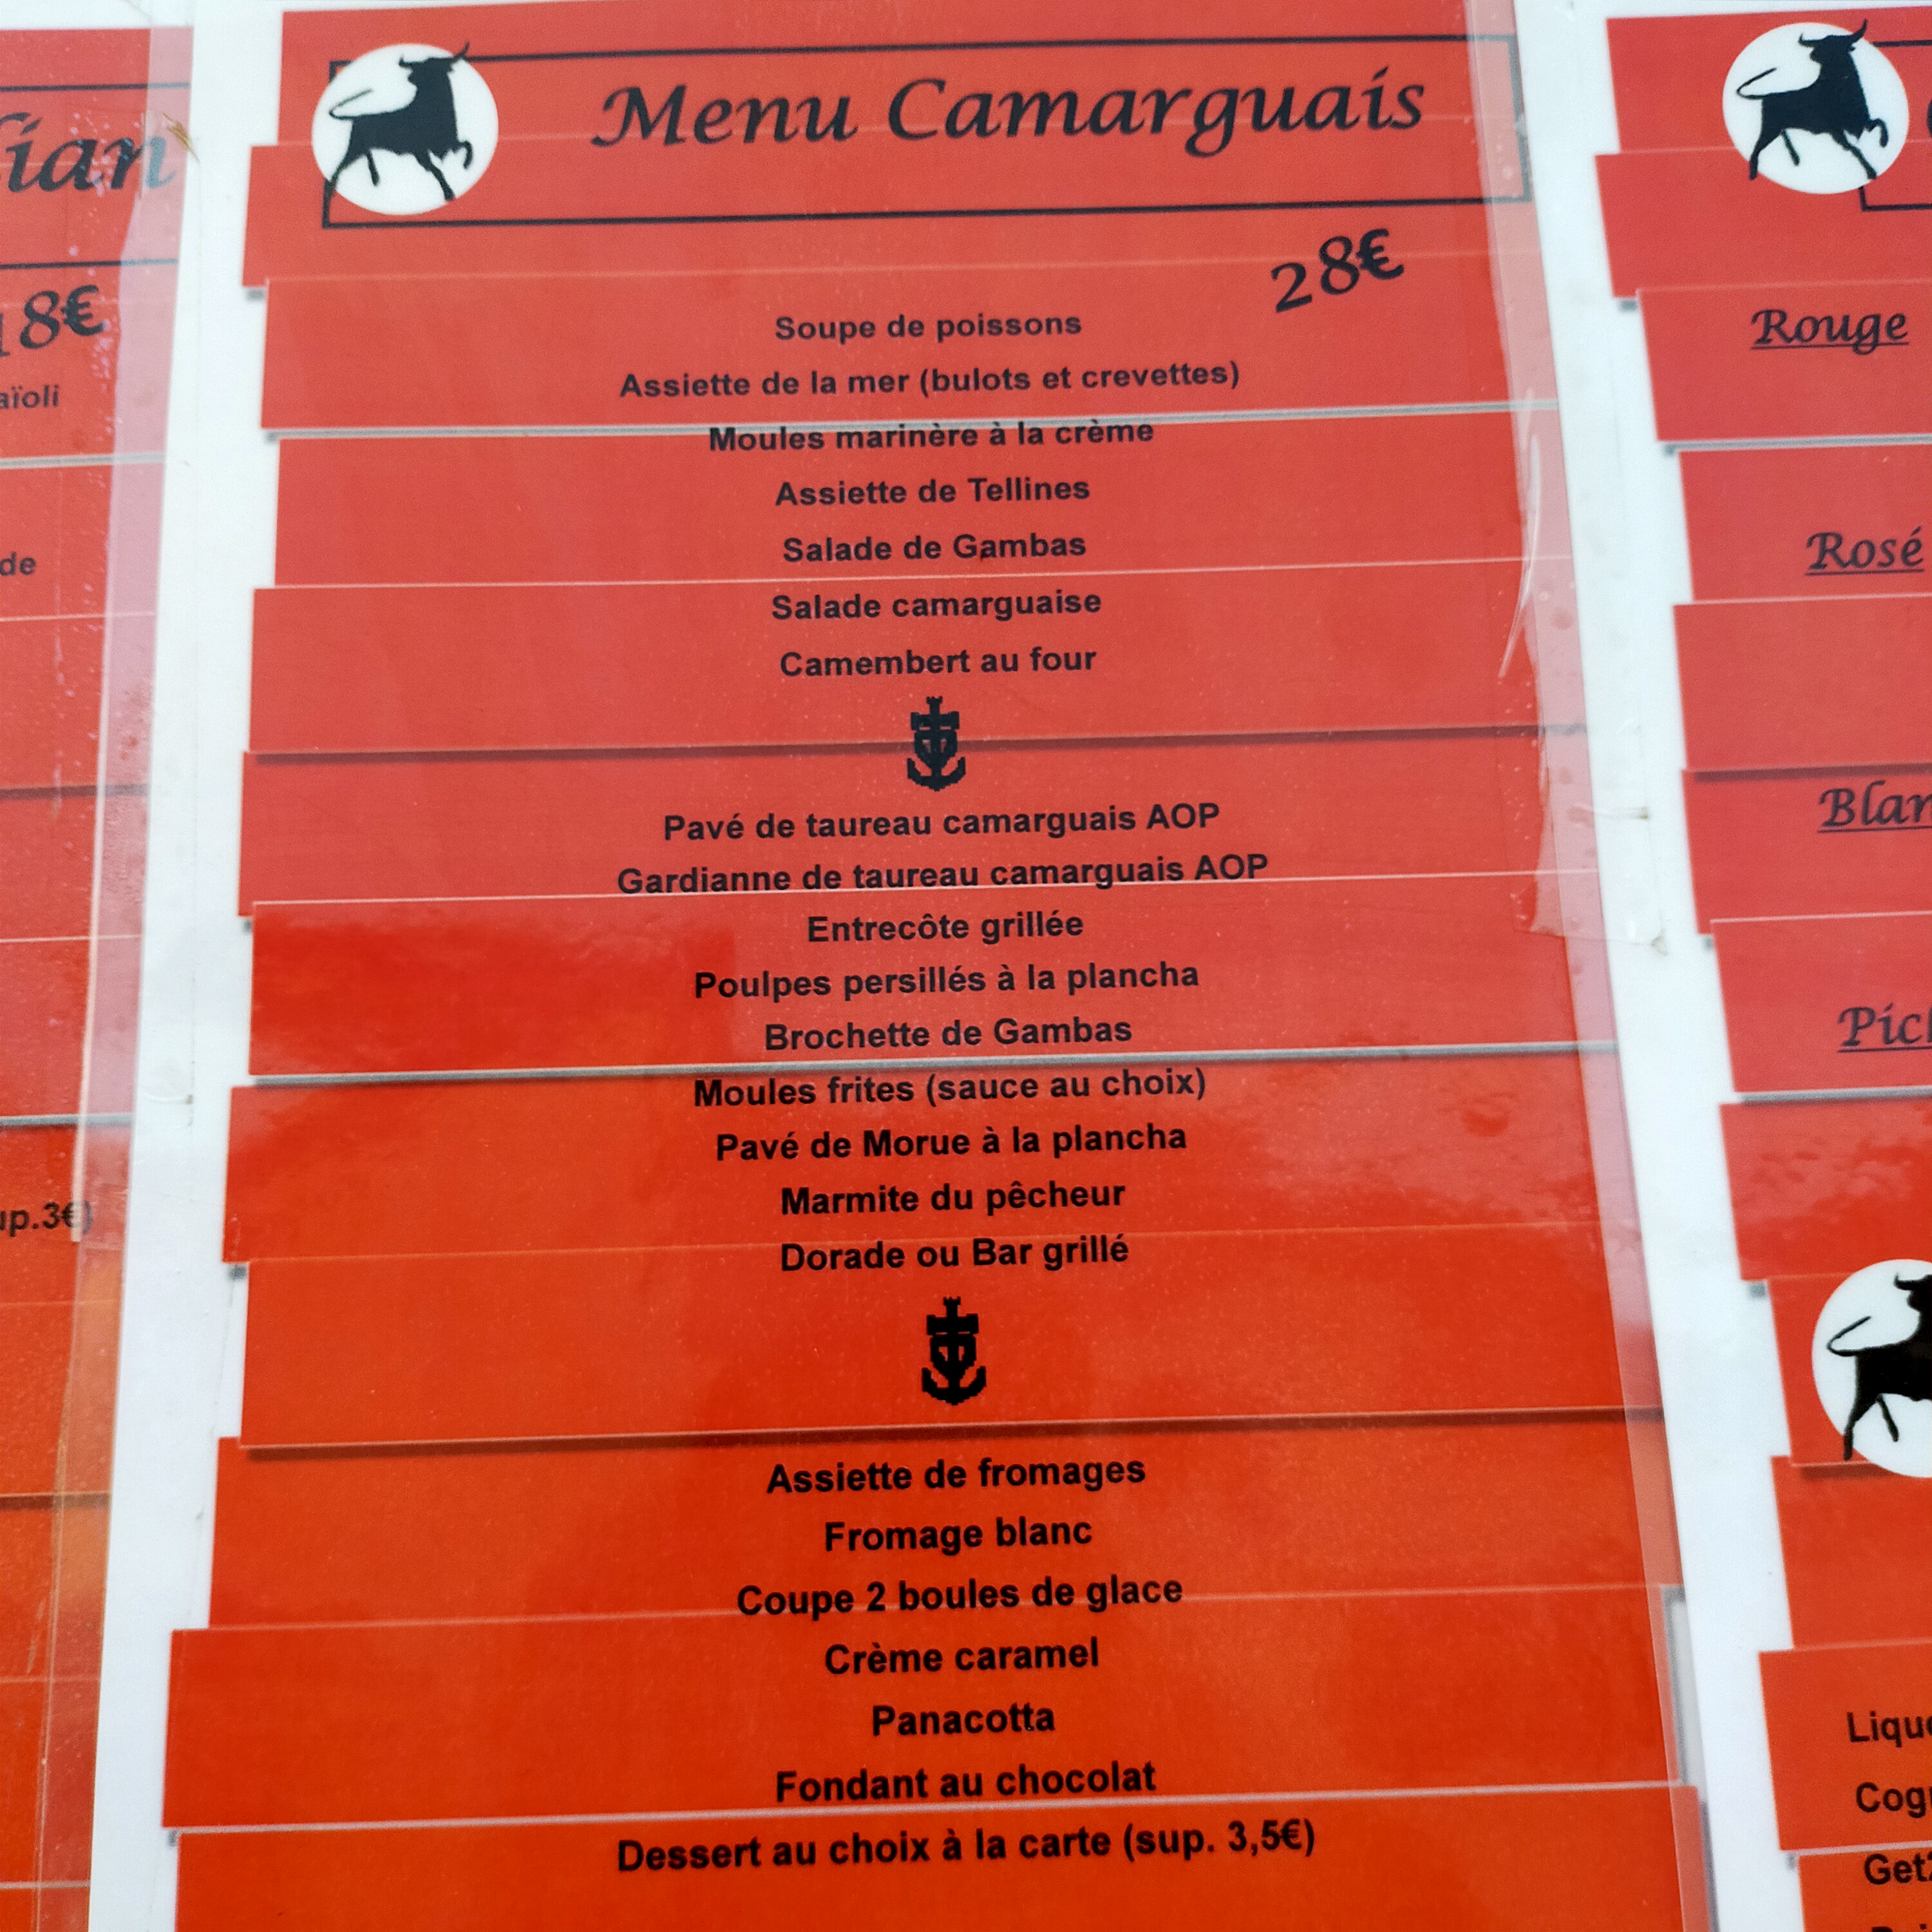 Menu Camarguais
28€
Soupe de poissons
Assiette de la mer (bulots et crevettes)
Moules marinère à la crème
Assiette de Tellines
Salade de Gambas
Salade camarguaise
Camembert au four
Pavé de taureau camarguais AOP
Gardianne de taureau camarguais AOP
Entrecôte grillée
Poulpes persillés à la plancha
Brochette de Gambas
Moules frites (sauce au choix)
Pavé de Morue à la plancha
Marmite du pêcheur
Dorade ou Bar grillé
Assiette de fromages
Fromage blanc
Coupe 2 boules de glace
Crème caramel
Panacotta
Fondant au chocolat
Dessert au choix à la carte (sup. 3,5€)
18€
aïoli
de
Rouge
Rosé